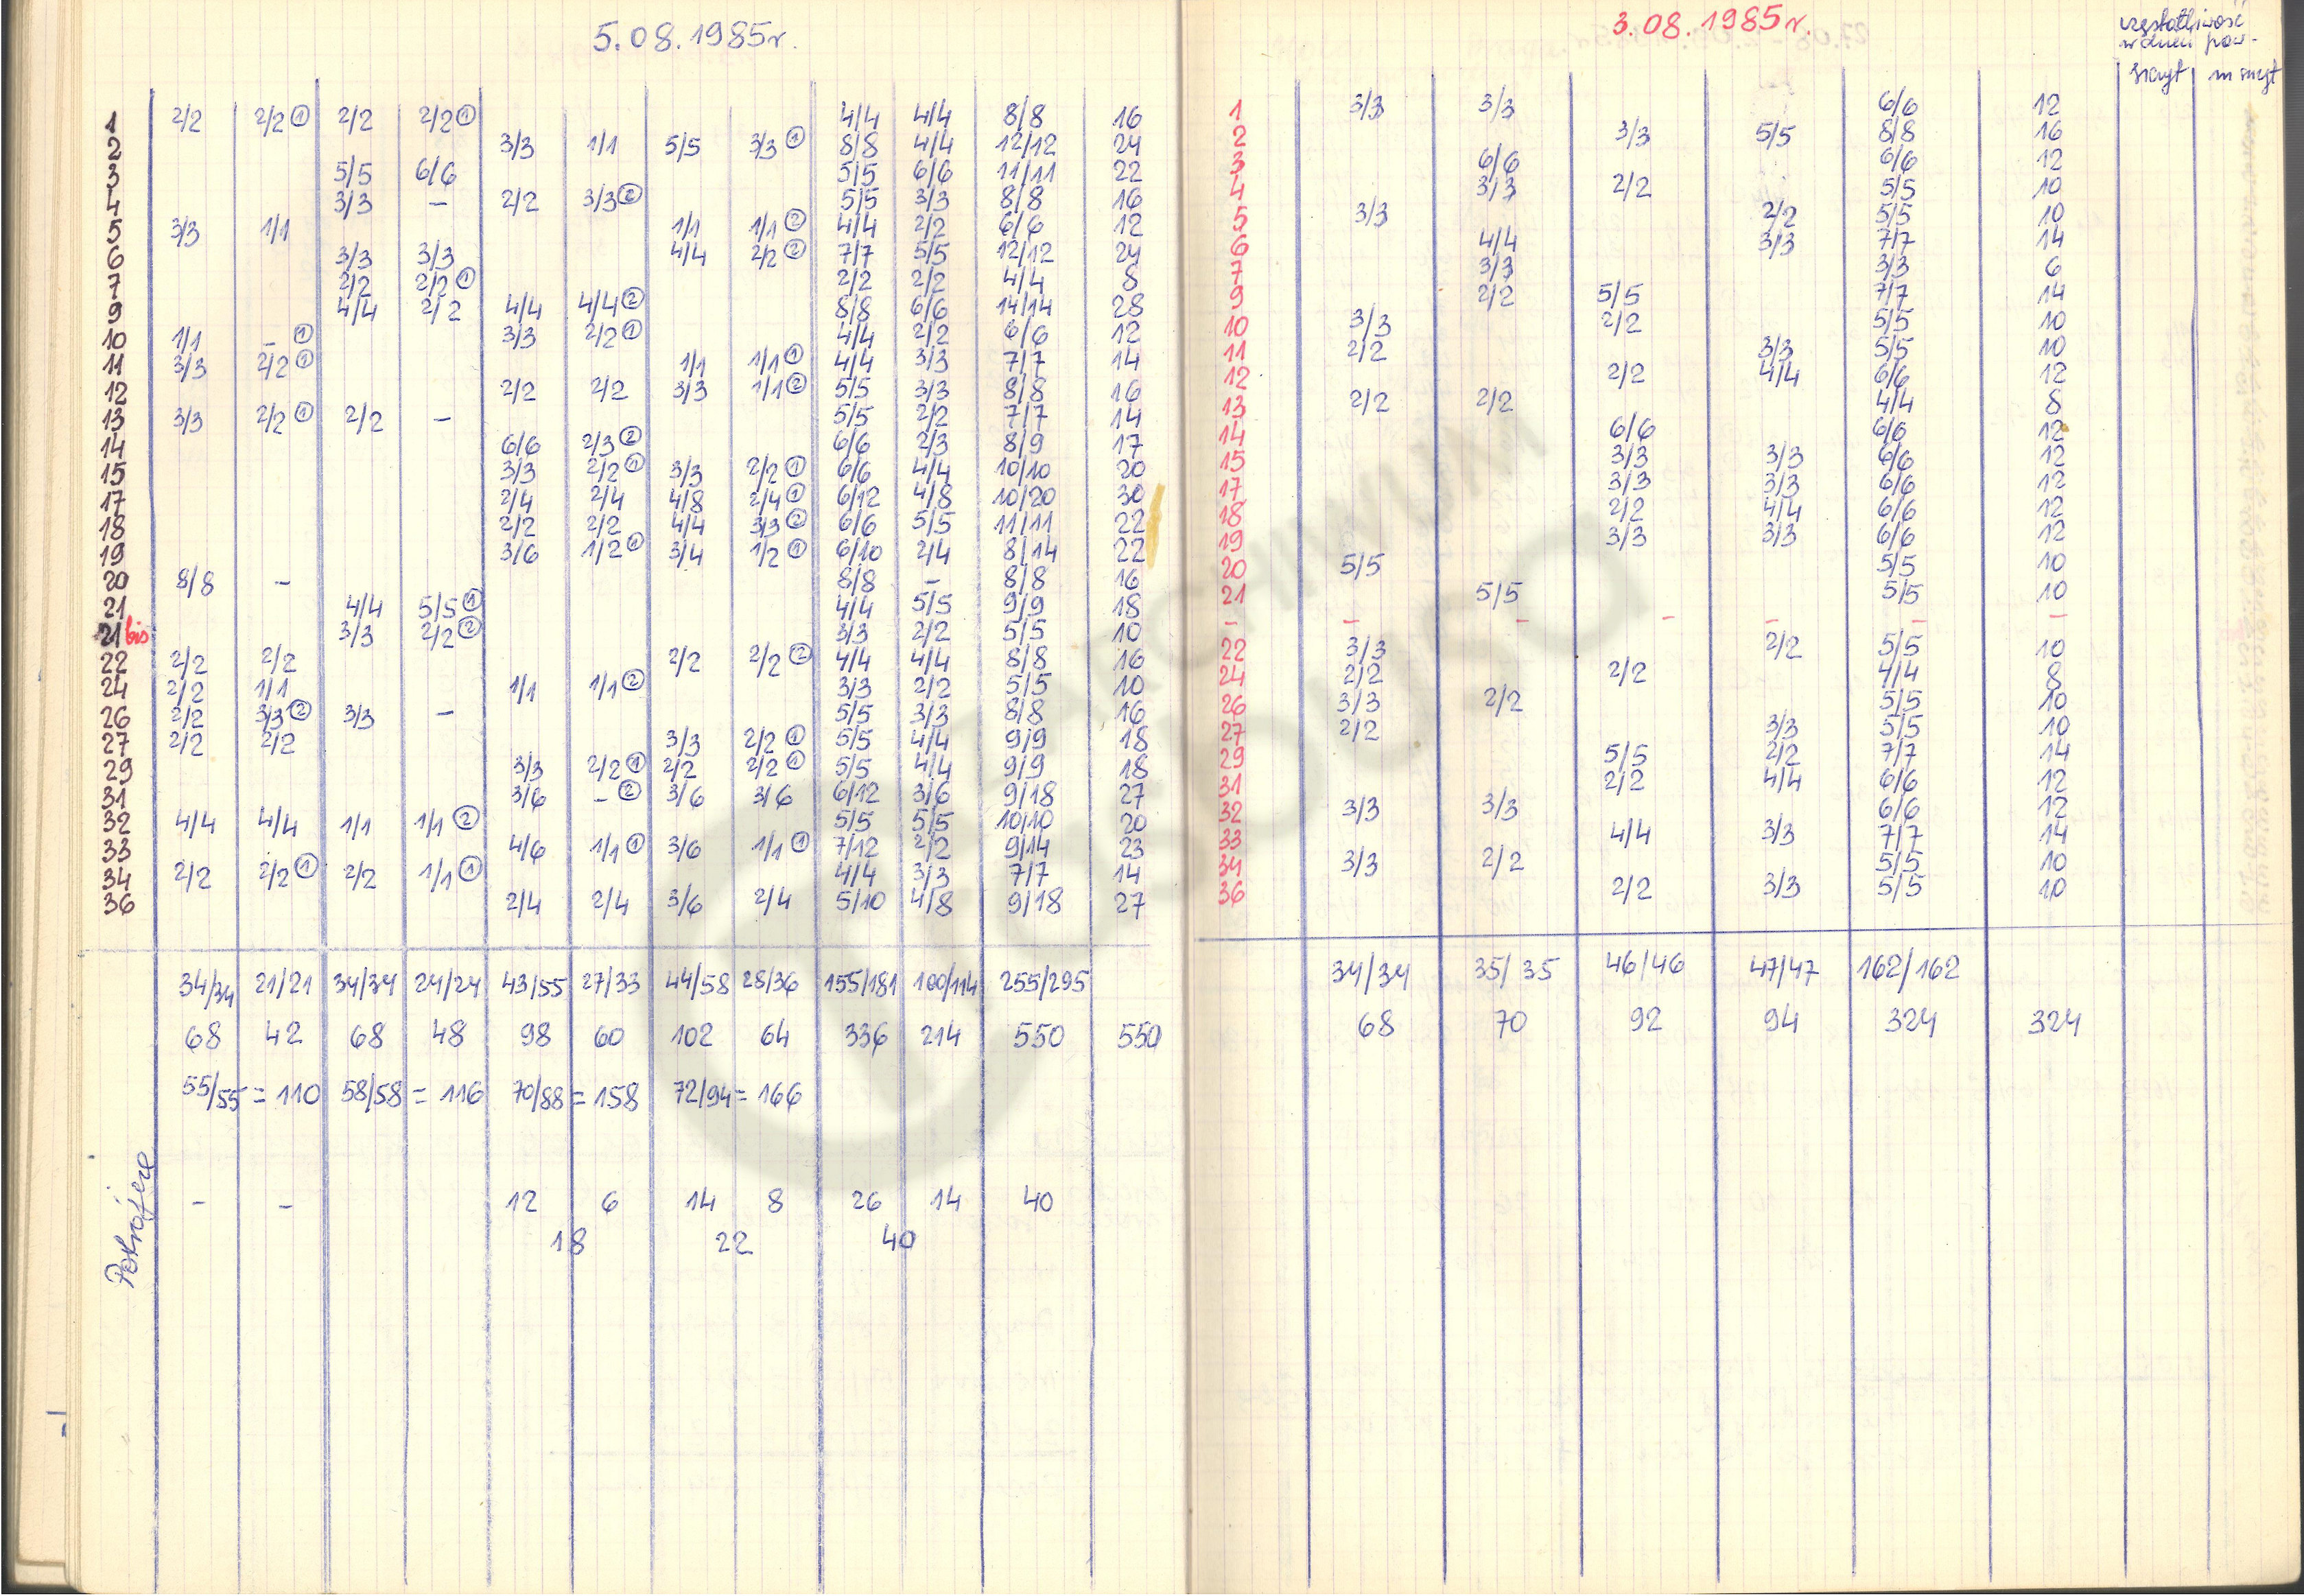 5.08.1985r.
1 2/2 2/2 ① 2/2 2/2 ① 4/4 4/4 8/8 16
2 3/3 1/1 5/5 3/3 ① 8/8 4/4 12/12 24
3 5/5 6/6 5/5 6/6 11/11 22
4 3/3 – 2/2 3/3 ② 5/5 3/3 8/8 16
5 3/3 1/1 1/1 1/1 ② 4/4 2/2 6/6 12
6 3/3 3/3 4/4 2/2 ② 7/7 5/5 12/12 24
7 2/2 2/2 ① 2/2 2/2 4/4 8
9 4/4 2/2 4/4 4/4 ② 8/8 6/6 14/14 28
10 1/1 – ① 3/3 2/2 ① 4/4 2/2 6/6 12
11 3/3 2/2 ① 1/1 1/1 ① 4/4 3/3 7/7 14
12 2/2 2/2 3/3 1/1 ② 5/5 3/3 8/8 16
13 3/3 2/2 ① 2/2 – 5/5 2/2 7/7 14
14 6/6 2/3 ② 6/6 2/3 8/9 17
15 3/3 2/2 ① 3/3 2/2 ① 6/6 4/4 10/10 20
17 2/4 2/4 4/8 2/4 ① 6/12 4/8 10/20 30
18 2/2 2/2 4/4 3/3 ② 6/6 5/5 11/11 22
19 3/6 1/2 ① 3/4 1/2 ① 6/10 2/4 8/14 22
20 8/8 – 8/8 – 8/8 16
21 4/4 5/5 ① 4/4 5/5 9/9 18
21 bis 3/3 2/2 ② 3/3 2/2 5/5 10
22 2/2 2/2 2/2 2/2 ② 4/4 4/4 8/8 16
24 2/2 1/1 1/1 1/1 ② 3/3 2/2 5/5 10
26 2/2 3/3 ② 3/3 – 5/5 3/3 8/8 16
27 2/2 2/2 3/3 2/2 ① 5/5 4/4 9/9 18
29 3/3 2/2 ① 2/2 2/2 ① 5/5 4/4 9/9 18
31 3/6 – ② 3/6 3/6 6/12 3/6 9/18 27
32 4/4 4/4 1/1 1/1 ② 5/5 5/5 10/10 20
33 4/6 1/1 ① 3/6 1/1 ① 7/12 2/2 9/14 23
34 2/2 2/2 ① 2/2 1/1 ① 4/4 3/3 7/7 14
36 2/4 2/4 3/6 2/4 5/10 4/8 9/18 27
34/34 21/21 34/34 24/24 43/55 27/33 44/58 28/36 155/181 100/114 255/295
68 42 68 48 98 60 102 64 336 214 550 550
55/55 = 110 58/58 = 116 70/88 = 158 72/94 = 166
– – 12 6 14 8 26 14 40
18 22 40
3.08.1985r.
częstotliwość
w dniu pow-
szczyt
1 3/3 3/3 6/6 12
2 3/3 5/5 8/8 16
3 6/6 6/6 12
4 3/3 2/2 5/5 10
5 3/3 2/2 5/5 10
6 4/4 3/3 7/7 14
7 3/3 3/3 6
9 2/2 5/5 7/7 14
10 3/3 2/2 5/5 10
11 2/2 3/3 5/5 10
12 2/2 4/4 6/6 12
13 2/2 2/2 4/4 8
14 6/6 6/6 12
15 3/3 3/3 6/6 12
17 3/3 3/3 6/6 12
18 2/2 4/4 6/6 12
19 3/3 3/3 6/6 12
20 5/5 5/5 10
21 5/5 5/5 10
– – – – – – –
22 3/3 2/2 5/5 10
24 2/2 2/2 4/4 8
26 3/3 2/2 5/5 10
27 2/2 3/3 5/5 10
29 5/5 2/2 7/7 14
31 2/2 4/4 6/6 12
32 3/3 3/3 6/6 12
33 4/4 3/3 7/7 14
34 3/3 2/2 5/5 10
36 2/2 3/3 5/5 10
34/34 35/35 46/46 47/47 162/162
68 70 92 94 324 324